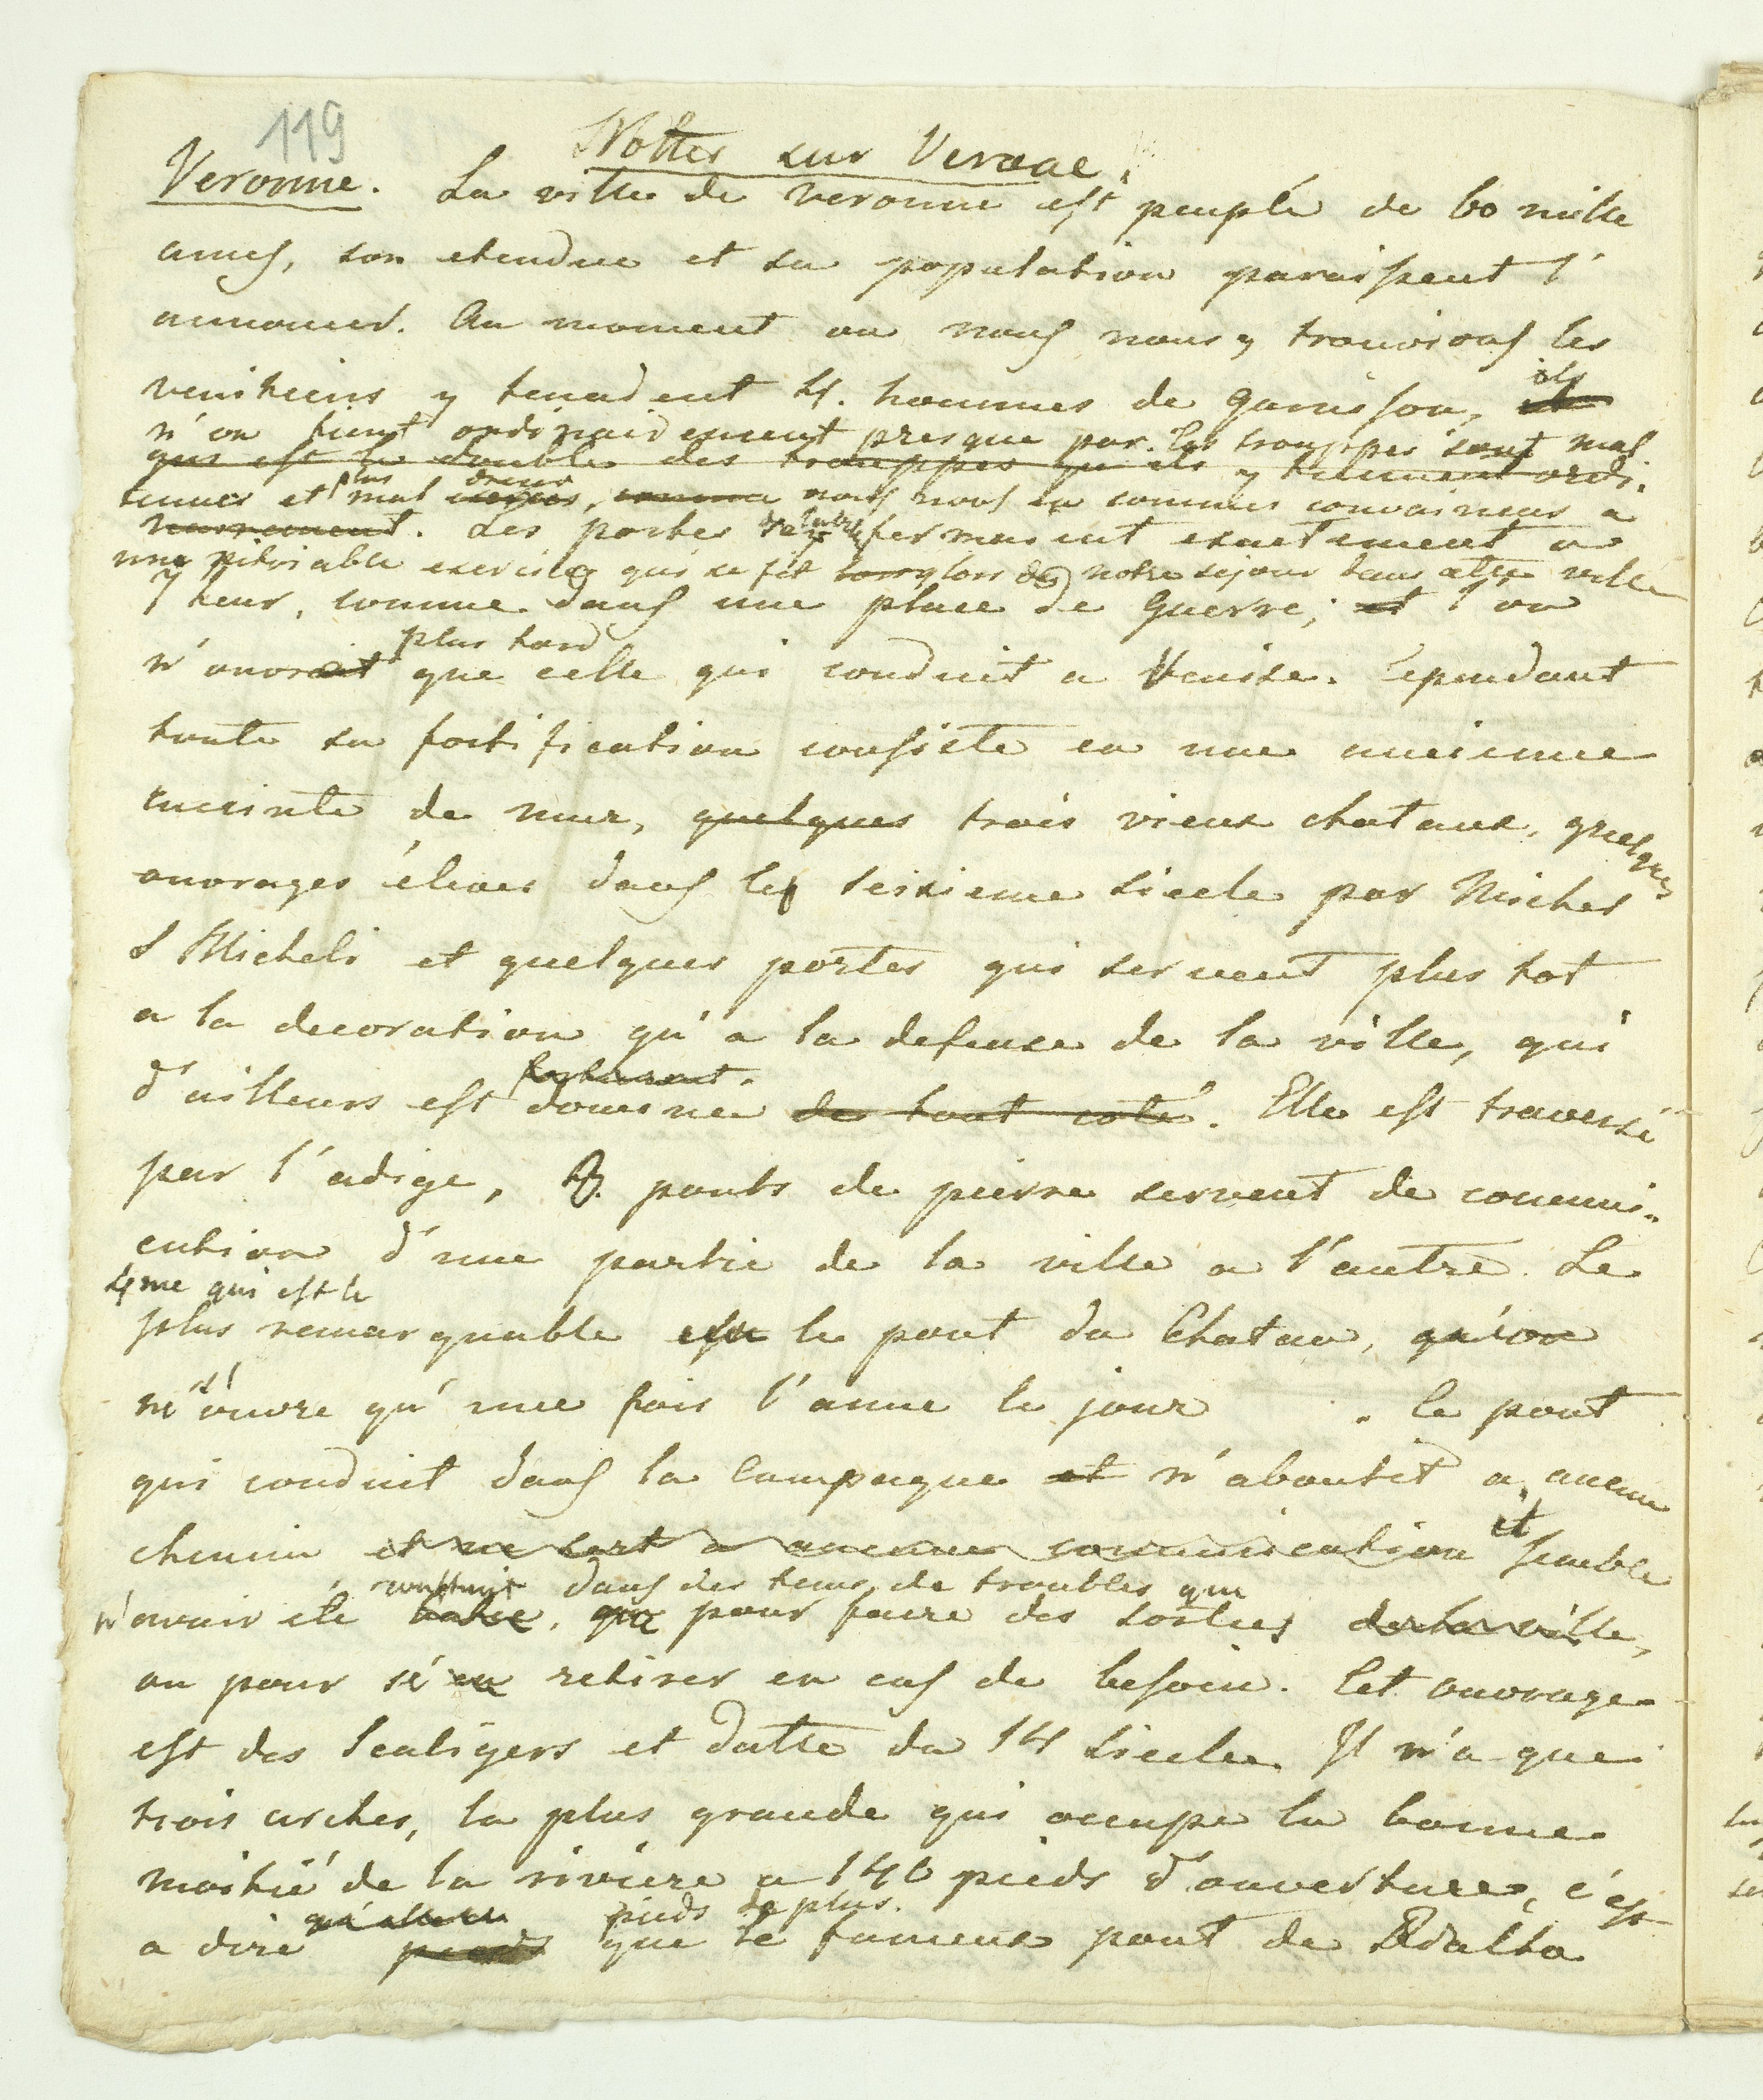 119
Nottes sur Verone.
Veronne. La ville de veronne est peuplé de 60 mille
ames, son etendue et sa population paraissent l'
annoncer. Au moment ou nous nous y trouvions les
venitiens y tenoient 4. hommes de garnison, ils
n'en tient ordinairement presque pas. les trouppes sont mal
qui est le double des trouppes qu'ils y tiennent ordi-
tenues et plus mal, comme nous nous en sommes convaincus a
nairement. Les portes se fermaient exactement a
une pitoiable exercice qui se fit lors de notre sejour dans cette ville
7 heur, comme dans une place de Guerre; et l'on
plus tard
n'ouvroit que celle qui conduit a Venise. Cependant
toute sa fortification consiste en une ancienne
enceinte de mur, quelques trois vieux chataux, quelques
ouvrages élevés dans le seizieme siecle par Michel
S Micheli et quelques portes qui servent plus tot
a la decoration qu'a la defense de la ville, qui
fortement.
d'ailleurs est dominée de tout coté. Elle est traversé
par l'adige, ponts de pierre servent de communi-
cation d'une partie de la ville a l'autre. Le
4me qui est le
plus remarquable est le pont du Chatau, qu'on
n'ouvre qu'une fois l'anne le jour . le pont
qui conduit dans la Campagne et n'aboutit a aucun
chemin et ne sert a aucune communication et semble
construit dans des tems de troubles que
n'avoir été batie, que pour faire des sorties de la ville,
ou pour s'en retirer en cas de besoin. Cet ouvrage
est des Scaligers et datte du 14 siecle. Il n'a que
trois arches, la plus grande qui occupe la bonne
moitié de la riviere a 146 pieds d'ouverture, c'est
pieds de plus.
a dire que le fameux pont de Rialto